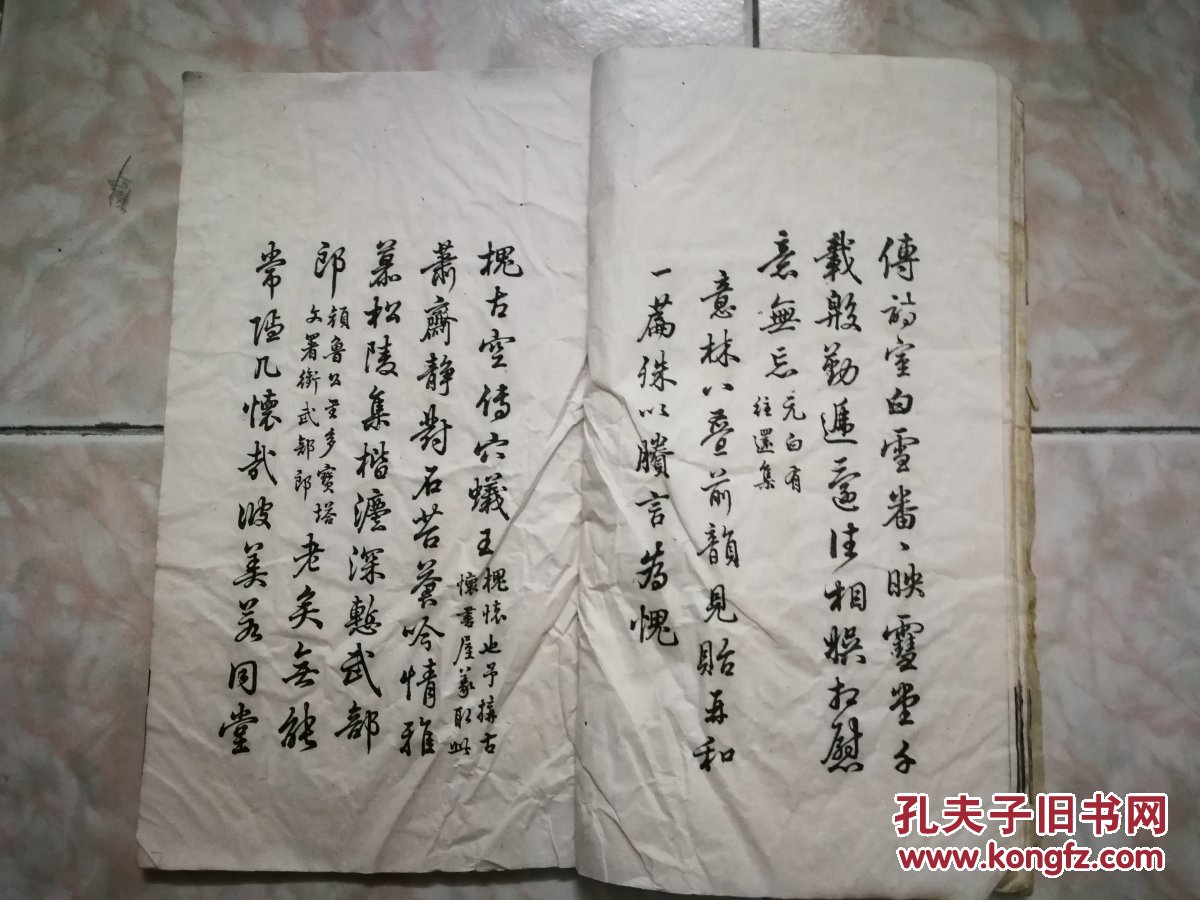 傳詩室白雪番〻映靈坐千
載殷勤遞𨗿往相娛相慰
意無忘 元白有
往還集
意林八叠前韻見貽再和
一篇殊以牘言為愧
槐古空傳穴蟻王 槐懷也予搆古
懷書屋蓋取此
蕭齋靜對石苔蒼吟情雅
慕松陵集楷灋深慙武部
郎 顏魯公書多寶塔
文署銜武部郎
老矣無能
常隱几懷哉彼美若同堂
孔夫子旧书网
www.kongfz.com